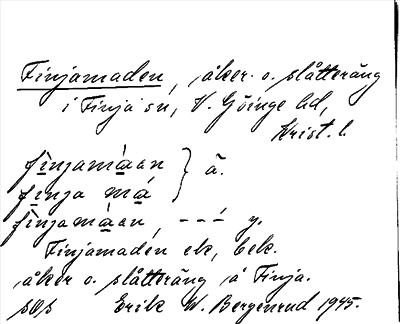 Finjamaden, åker- o. slåtteräng
i Finja sn, V. Göinge hd,
Krist. l.
finjamàan } ä.
finja má
finjamàan, - - -́ y.
Finjamaden ek, bek.
åker o. slåtteräng å Finja.
sOs Erik W. Bergenrud 1945.